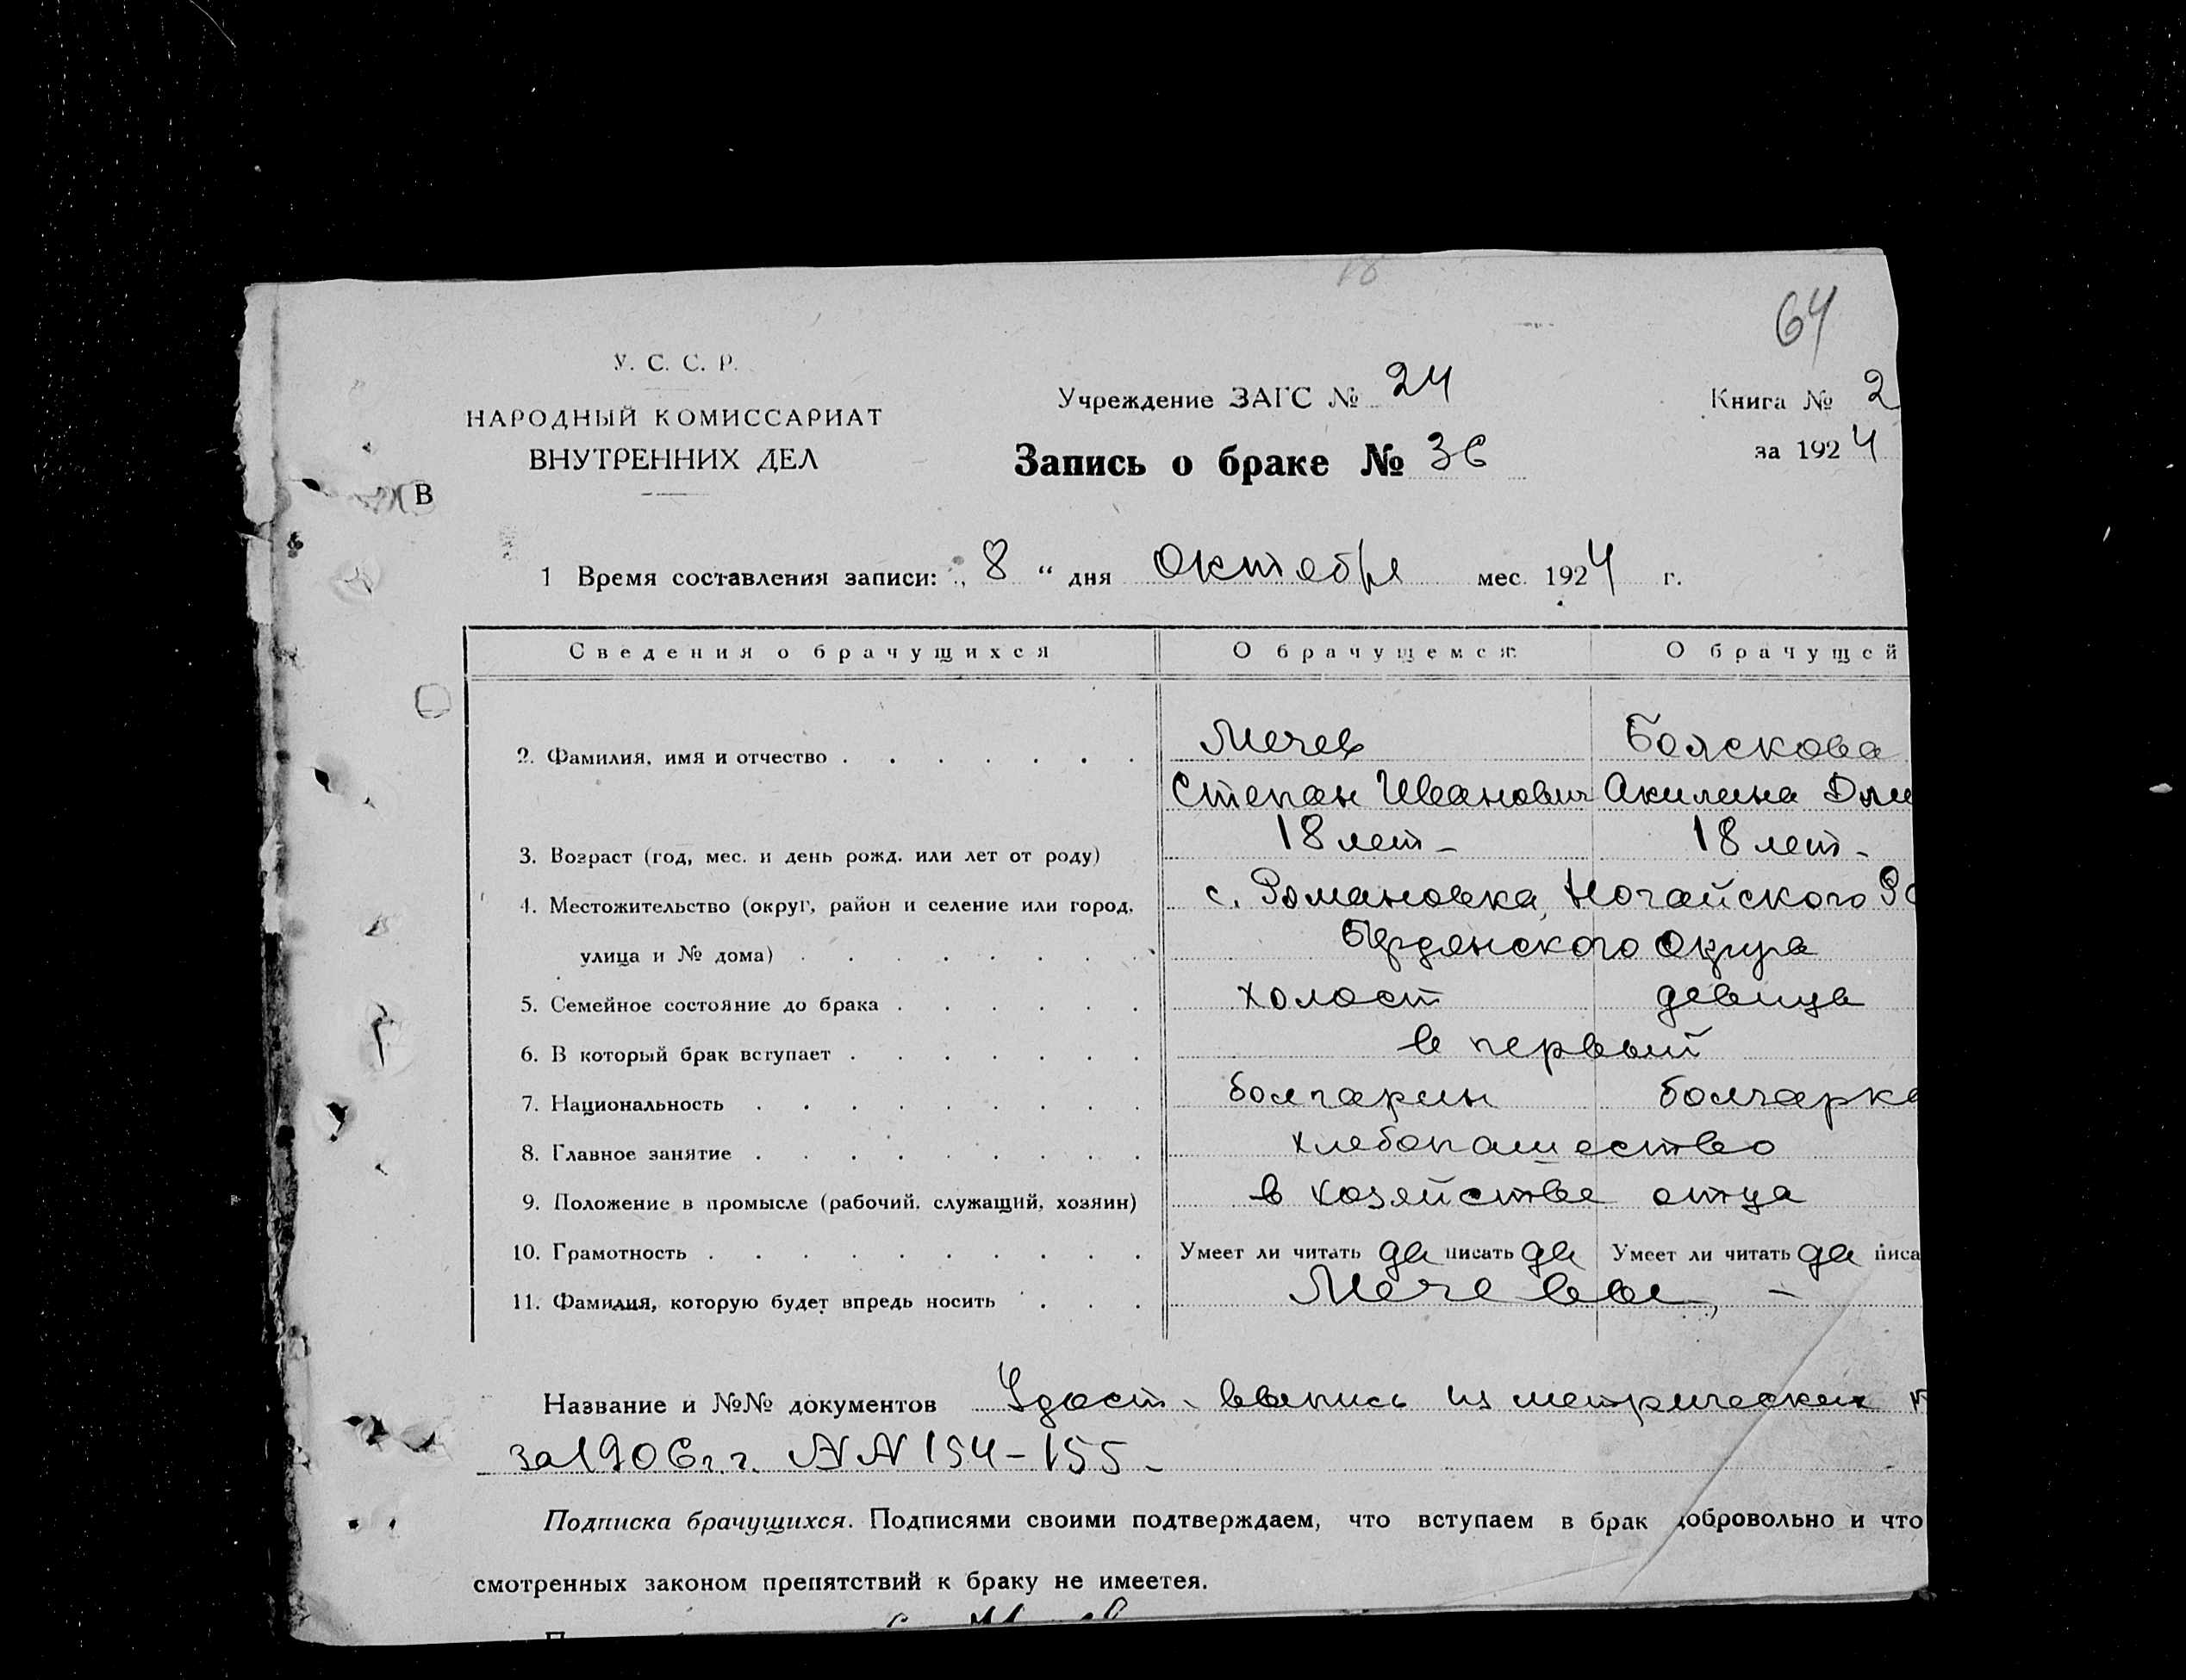 64
У. С. С. Р.
НАРОДНЫЙ КОМИССАРИАТ
ВНУТРЕННИХ ДЕЛ
В
Учреждение ЗАГС № 24
Книга № 2
Запись о браке № 36
за 1924
1 Время составления записи: „ 8 “ дня Октября мес. 1924 г.
Сведения о брачущихся О брачущемся: О брачущей
2. Фамилия, имя и отчество Мечев Боляскова
Степан Иванович Акилина Дми
3. Возраст (год, мес. и день рожд. или лет от роду) 18 лет - 18 лет -
4. Местожительство (округ, район и селение или город, с. Романовка, Ногайского Ра
улица и № дома) Бердянского Округа
5. Семейное состояние до брака холост девица
6. В который брак вступает в первый
7. Национальность болгарин болгарка
8. Главное занятие хлебопашество
9. Положение в промысле (рабочий, служащий, хозяин) в хозяйстве отца
10. Грамотность Умеет ли читать да писать да Умеет ли читать да писа
11. Фамилия, которую будет впредь носить Мечевы, -
Название и №№ документов Удост. выпись из метрических к
за 1906 г.г. NN 154-155 -
Подписка брачущихся. Подписями своими подтверждаем, что вступаем в брак добровольно и что
смотренных законом препятствий к браку не имеетея.